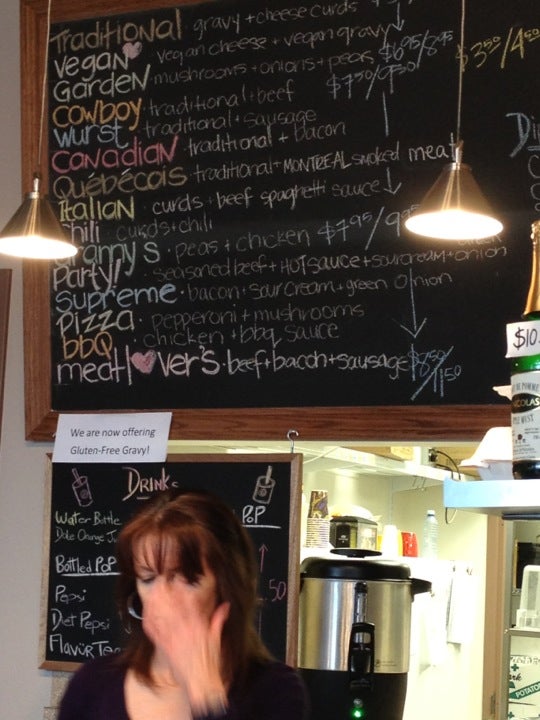 Traditional · gravy + cheese curds
vegan · vegan cheese + vegan gravy
Garden · mushrooms + onions + peas $6⁹⁵/8⁹⁵ $3⁵⁰/4⁵⁰
cowboy · traditional + beef $7⁵⁰/9⁵⁰
wurst · traditional + sausage
Canadian · traditional + bacon
Québécois · traditional + MONTREAL smoked meat
Italian · curds + beef spaghetti sauce
chili · curds + chili
Granny's · peas + chicken $7⁹⁵/9
Party! · seasoned beef + HOT sauce + sour cream + green onion
supreme · bacon + sour cream + green onion
pizza · pepperoni + mushrooms
bbQ · chicken + bbq sauce
meatl♥ver's · beef + bacon + sausage $8⁵⁰/11⁵⁰
$10.
We are now offering
Gluten-Free Gravy!
Drinks
PoP
Water Bottle
Dole Orange
Bottled PoP
Pepsi
.50
Diet Pepsi
Flavor Tea
POTATO